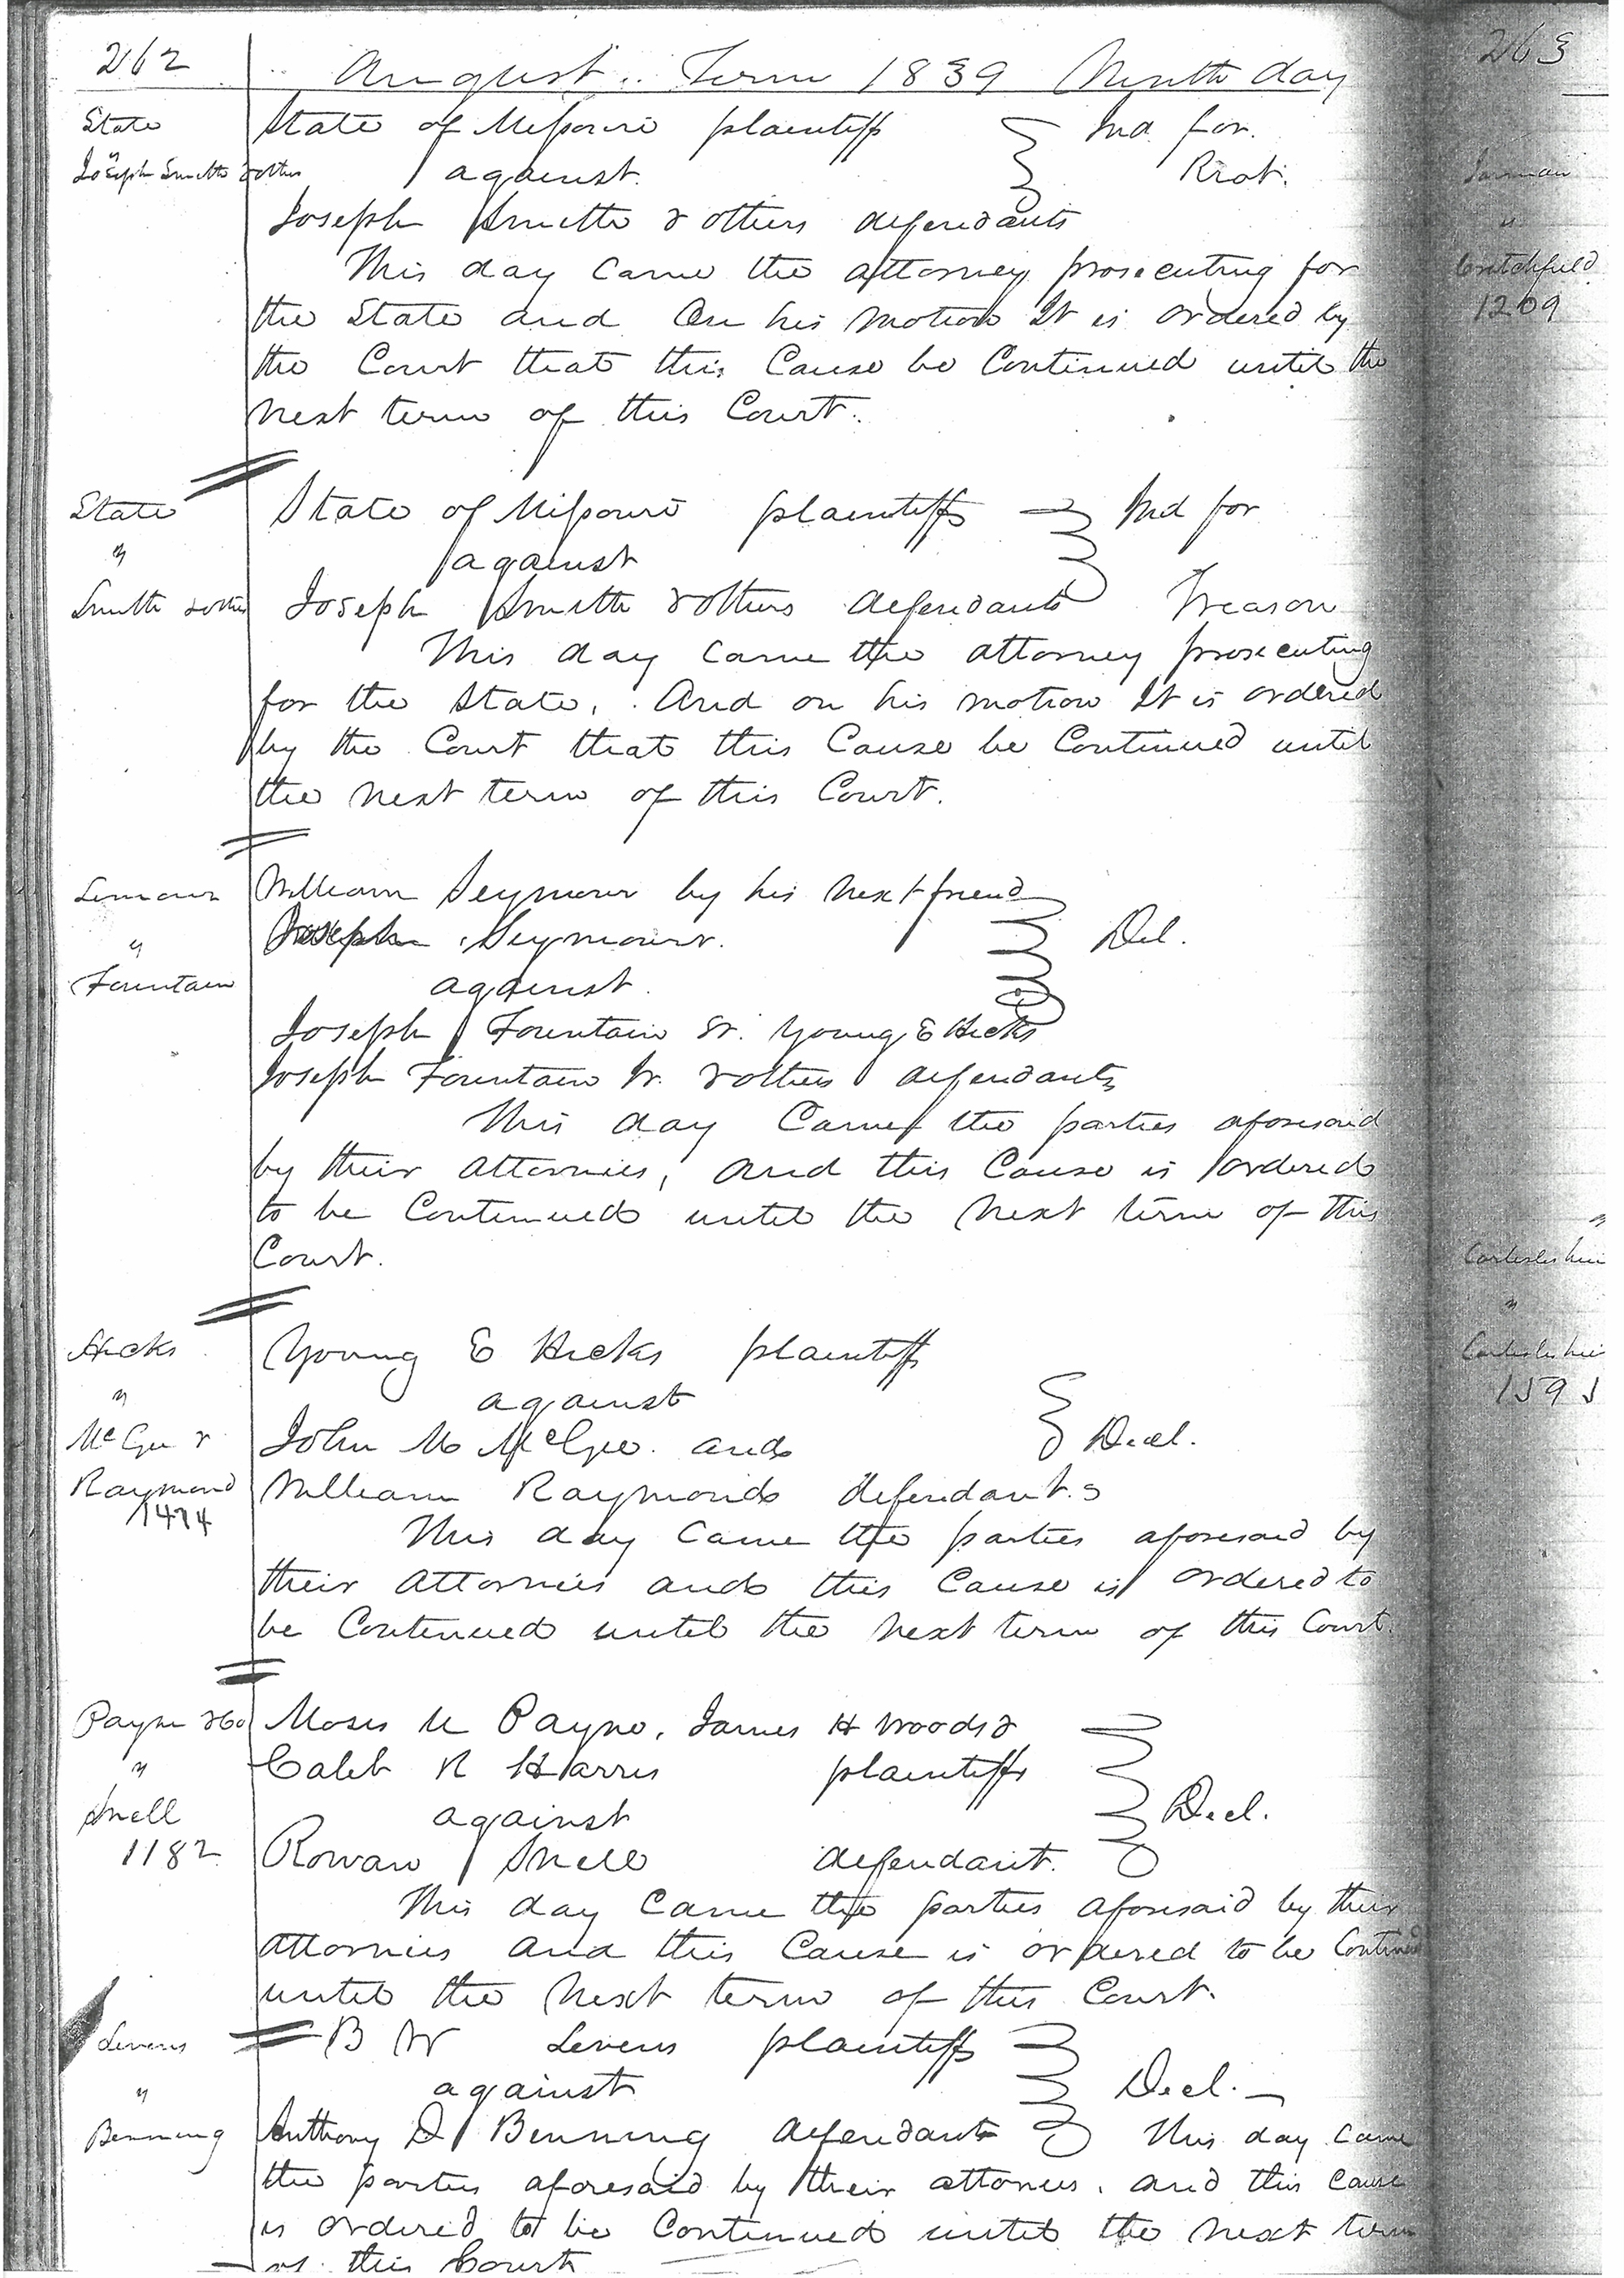 262
August .. Term 1839 Ninth day
State
"
Joseph Smith & others
State of Missouri plaintiff
against.
Joseph Smith & others defendants
Ind. for.
Riot.
This day came the attorney prosecuting for
the State and On his motion It is ordered by
the Court that this Cause be Continued until the
next term of this Court.
State
"
Smith & others
State of Missouri plaintiffs
against
Joseph Smith & others defendants
Ind for
Treason
This day came the attorney prosecuting
for the State, And on his motion It is ordered
by the Court that this Cause be Continued until
the next term of this Court.
"
Fountain
William Seymour by his next friend
Joseph Seymour.
against.
Joseph Fountain Sr. Young E Hicks
Joseph Fountain Jr. & others defendants
This day Came the parties aforesaid
by their attornies, and this Cause is ordered
to be Continued until the next term of this
Court.
Hicks
"
McGee &
Raymond
1474
Young E Hicks plaintiff
against
John M McGee. and
William Raymond defendants
Decl.
This day came the parties aforesaid by
their attornies and this Cause is ordered to
be Continued until the next term of this Court.
Payne & Co
"
Snell
1182
Moses U Payne, James H Woods &
Caleb R Harris plaintiffs
against
Rowan Snell defendant.
Decl.
This day Came the parties aforesaid by their
attornies and this Cause is ordered to be Continued
until the next term of this Court.
Levens
"
Benning
B W Levens plaintiff
against
Decl. —
Anthony D Benning defendant This day came
the parties aforesaid by their attornies, and this Cause
is ordered to be Continued until the next term
of this Court
263
"
Critchfield
1209
"